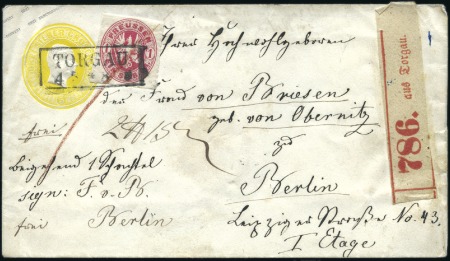 TORGAU
Ihrer Hochwohlgeboren
der Frau von Briesen
geb. von Obernitz
zu
Berlin
Leipziger Straße No. 43.
I Etage
frei
Beigehend 1 Schachtel
sign: F. v. B.
frei Berlin
786.
aus Torgau.